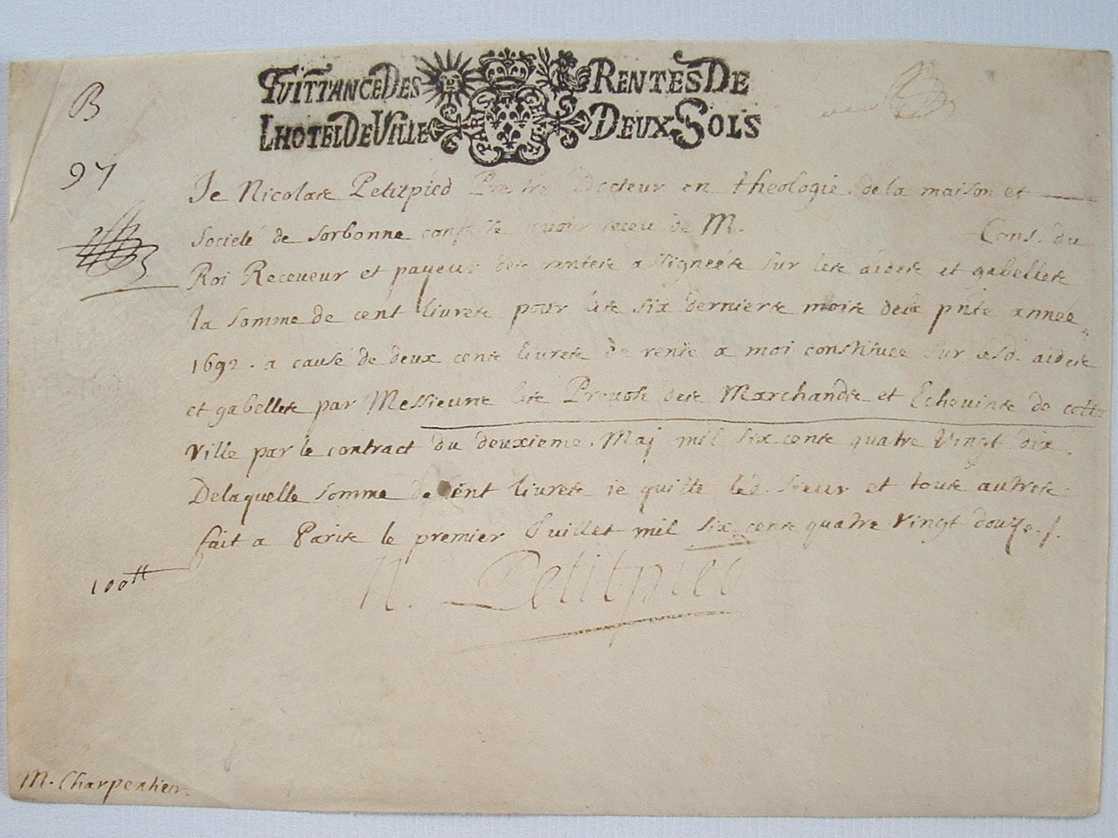 QUITTANCE DES RENTES DE
LHOTEL DE VILLE DEUX SOLS
PARIS
B
97
Je Nicolas Petitpied Pretre Docteur en theologie de la maison et
Societé de Sorbonne confesse avoir receu de M. Cons. du
Roi Receveur et payeur des rentes assignées sur les aides et gabelles
la somme de cent livres pour les six derniers mois de la pnte année
1692. a cause de deux cens livres de rente a moi constituée sur lesd. aides
et gabelles par Messieurs les Prevost des Marchands et Echevins de cette
ville par le contract du deuxieme. Maj mil six cens quatre vingt dix.
De laquelle somme de cent livres ie quitte led. sieur et tous autres
fait a Paris le premier Juillet mil six cens quatre vingt douze.
100tt
N. Petitpied
M. Charpentier.